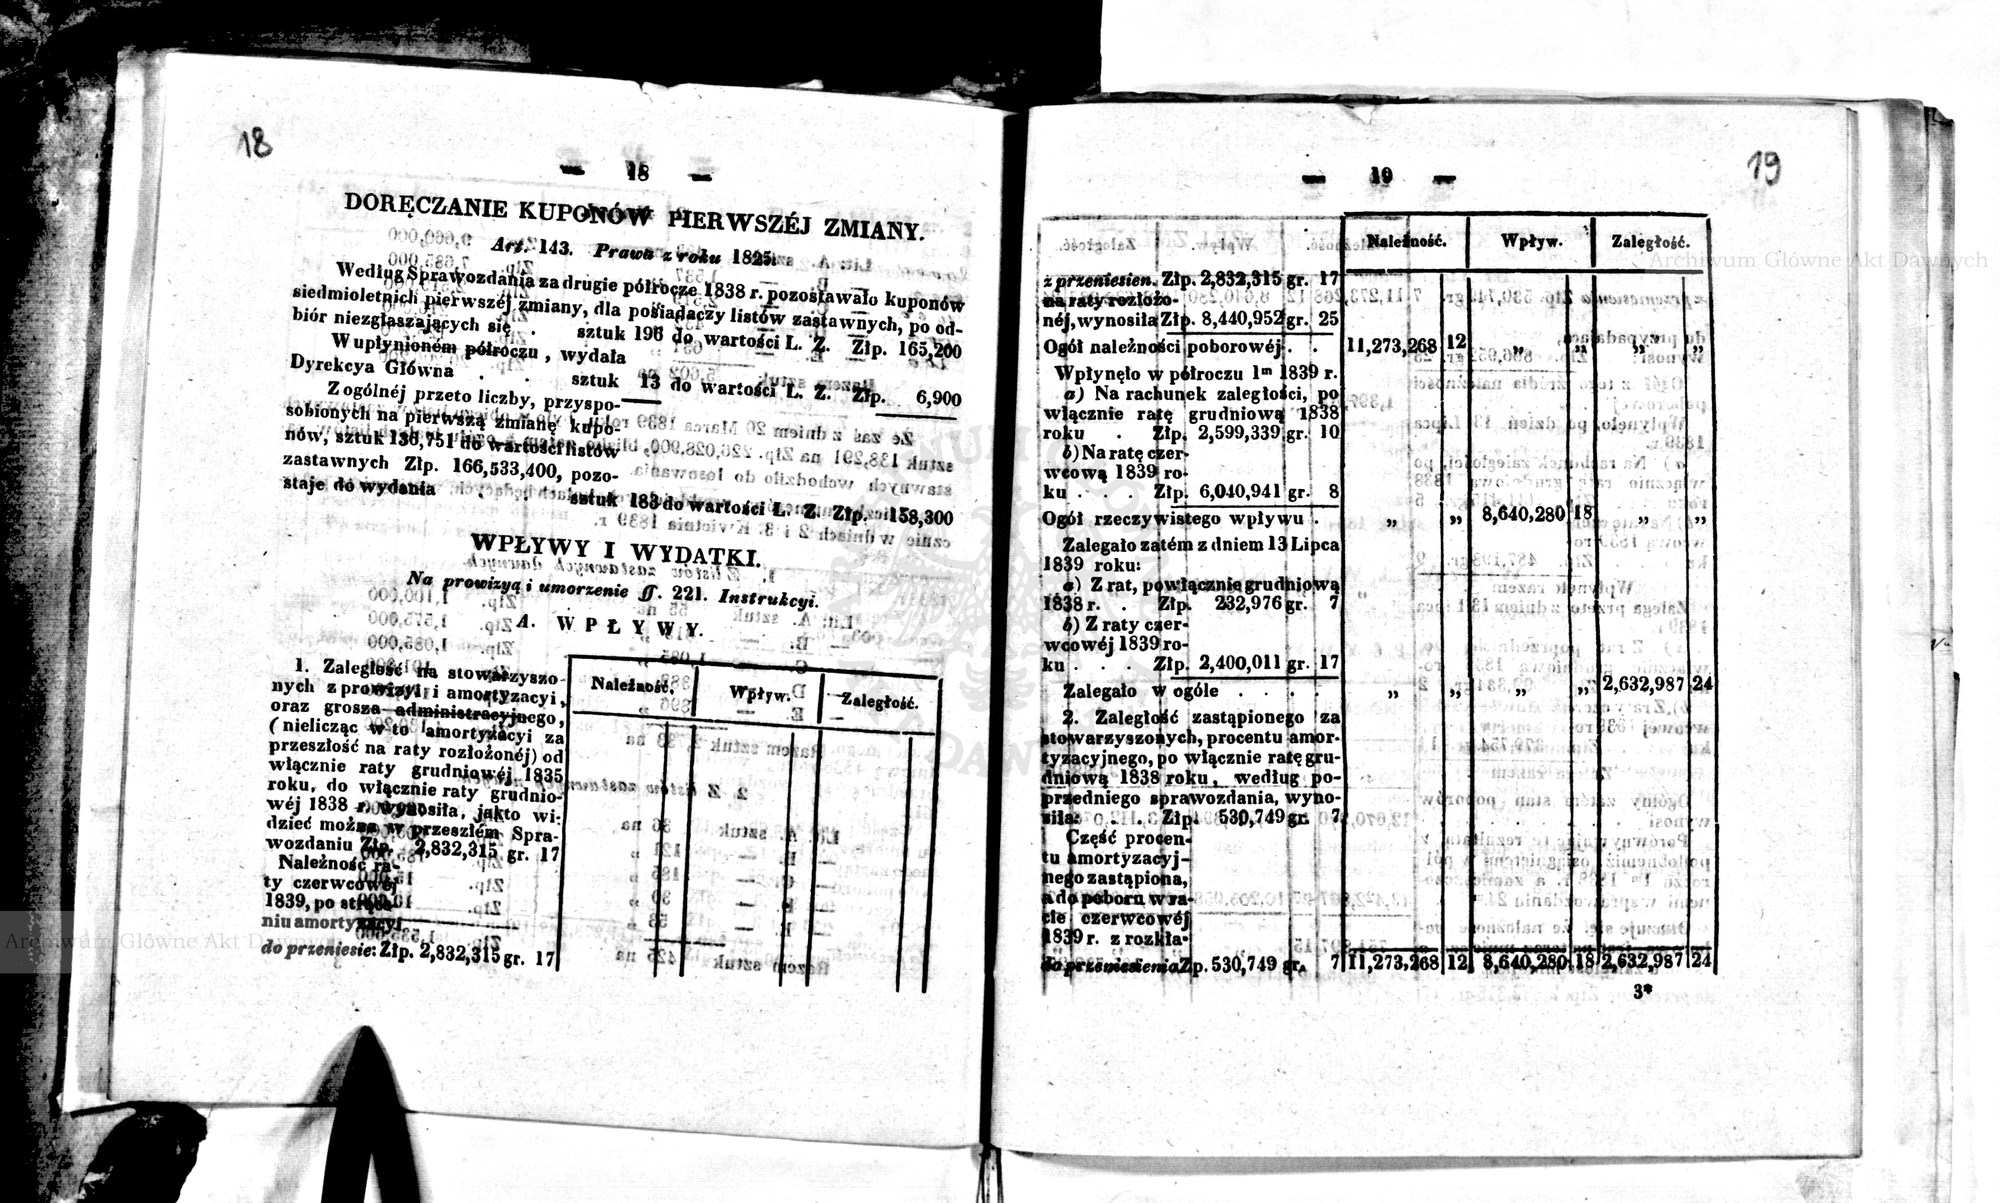 18
— 18 —
DORĘCZANIE KUPONÓW PIERWSZÉJ ZMIANY.
Art. 143. Prawa z roku 1825.
Według Sprawozdania za drugie półrocze 1838 r. pozostawało kuponów
siedmioletnich pierwszéj zmiany, dla posiadaczy listów zastawnych, po od-
biór niezgłaszających się . sztuk 196 do wartości L. Z. Złp. 165,200
W upłynioném półroczu, wydała
Dyrekcya Główna . . sztuk 13 do wartości L. Z. Złp. 6,900
Z ogólnéj przeto liczby, przyspo-
sobionych na pierwszą zmianę kupo-
nów, sztuk 136,751 do wartości listów
zastawnych Złp. 166,533,400, pozo-
staje do wydania . . sztuk 183 do wartości L. Z. Złp. 158,300
WPŁYWY I WYDATKI.
Na prowizyą i umorzenie §§. 221. Instrukcyi.
A. WPŁYWY.
Należność. Wpływ. Zaległość.
1. Zaległość na stowarzyszo-
nych z prowizyi i amortyzacyi,
oraz grosza administracyjnego,
(nielicząc w to amortyzacyi za
przeszłość na raty rozłożonéj) od
włącznie raty grudniowéj 1835
roku, do włącznie raty grudnio-
wéj 1838 r. wynosiła, jakto wi-
dzieć można w przeszłém Spra-
wozdaniu Złp. 2,832,315 gr. 17
Należność ra-
ty czerwcowéj
1839, po strące-
niu amortyzacyi
do przeniesie: Złp. 2,832,315 gr. 17
19
— 19 —
Należność. Wpływ. Zaległość.
z przeniesien. Złp. 2,832,315 gr. 17
na raty rozłożo-
néj, wynosiła Złp. 8,440,952 gr. 25
Ogół należności poborowéj . . 11,273,268 12 „ „ „ „
Wpłynęło w półroczu 1m 1839 r.
a) Na rachunek zaległości, po
włącznie ratę grudniową 1838
roku . Złp. 2,599,339 gr. 10
b) Na ratę czer-
wcową 1839 ro-
ku . . . Złp. 6,040,941 gr. 8
Ogół rzeczywistego wpływu . „ „ 8,640,280 18 „ „
Zalegało zatém z dniem 13 Lipca
1839 roku:
a) Z rat, po włącznie grudniową
1838 r. . Złp. 232,976 gr. 7
b) Z raty czer-
wcowéj 1839 ro-
ku . . . Złp. 2,400,011 gr. 17
Zalegało w ogóle . . . . „ „ „ „ 2,632,987 24
2. Zaległość zastąpionego za
stowarzyszonych, procentu amor-
tyzacyjnego, po włącznie ratę gru-
dniową 1838 roku, według po-
przedniego sprawozdania, wyno-
siła: . . . Złp. 530,749 gr. 7
Część procen-
tu amortyzacyj-
nego zastąpiona,
a do poboru w ra-
cie czerwcowéj
1839 r. z rozkła-
do przeniesienia Zp. 530,749 gr. 7 11,273,268 12 8,640,280 18 2,632,987 24
3*
Archiwum Główne Akt Dawnych
Archiwum Główne Akt Dawnych